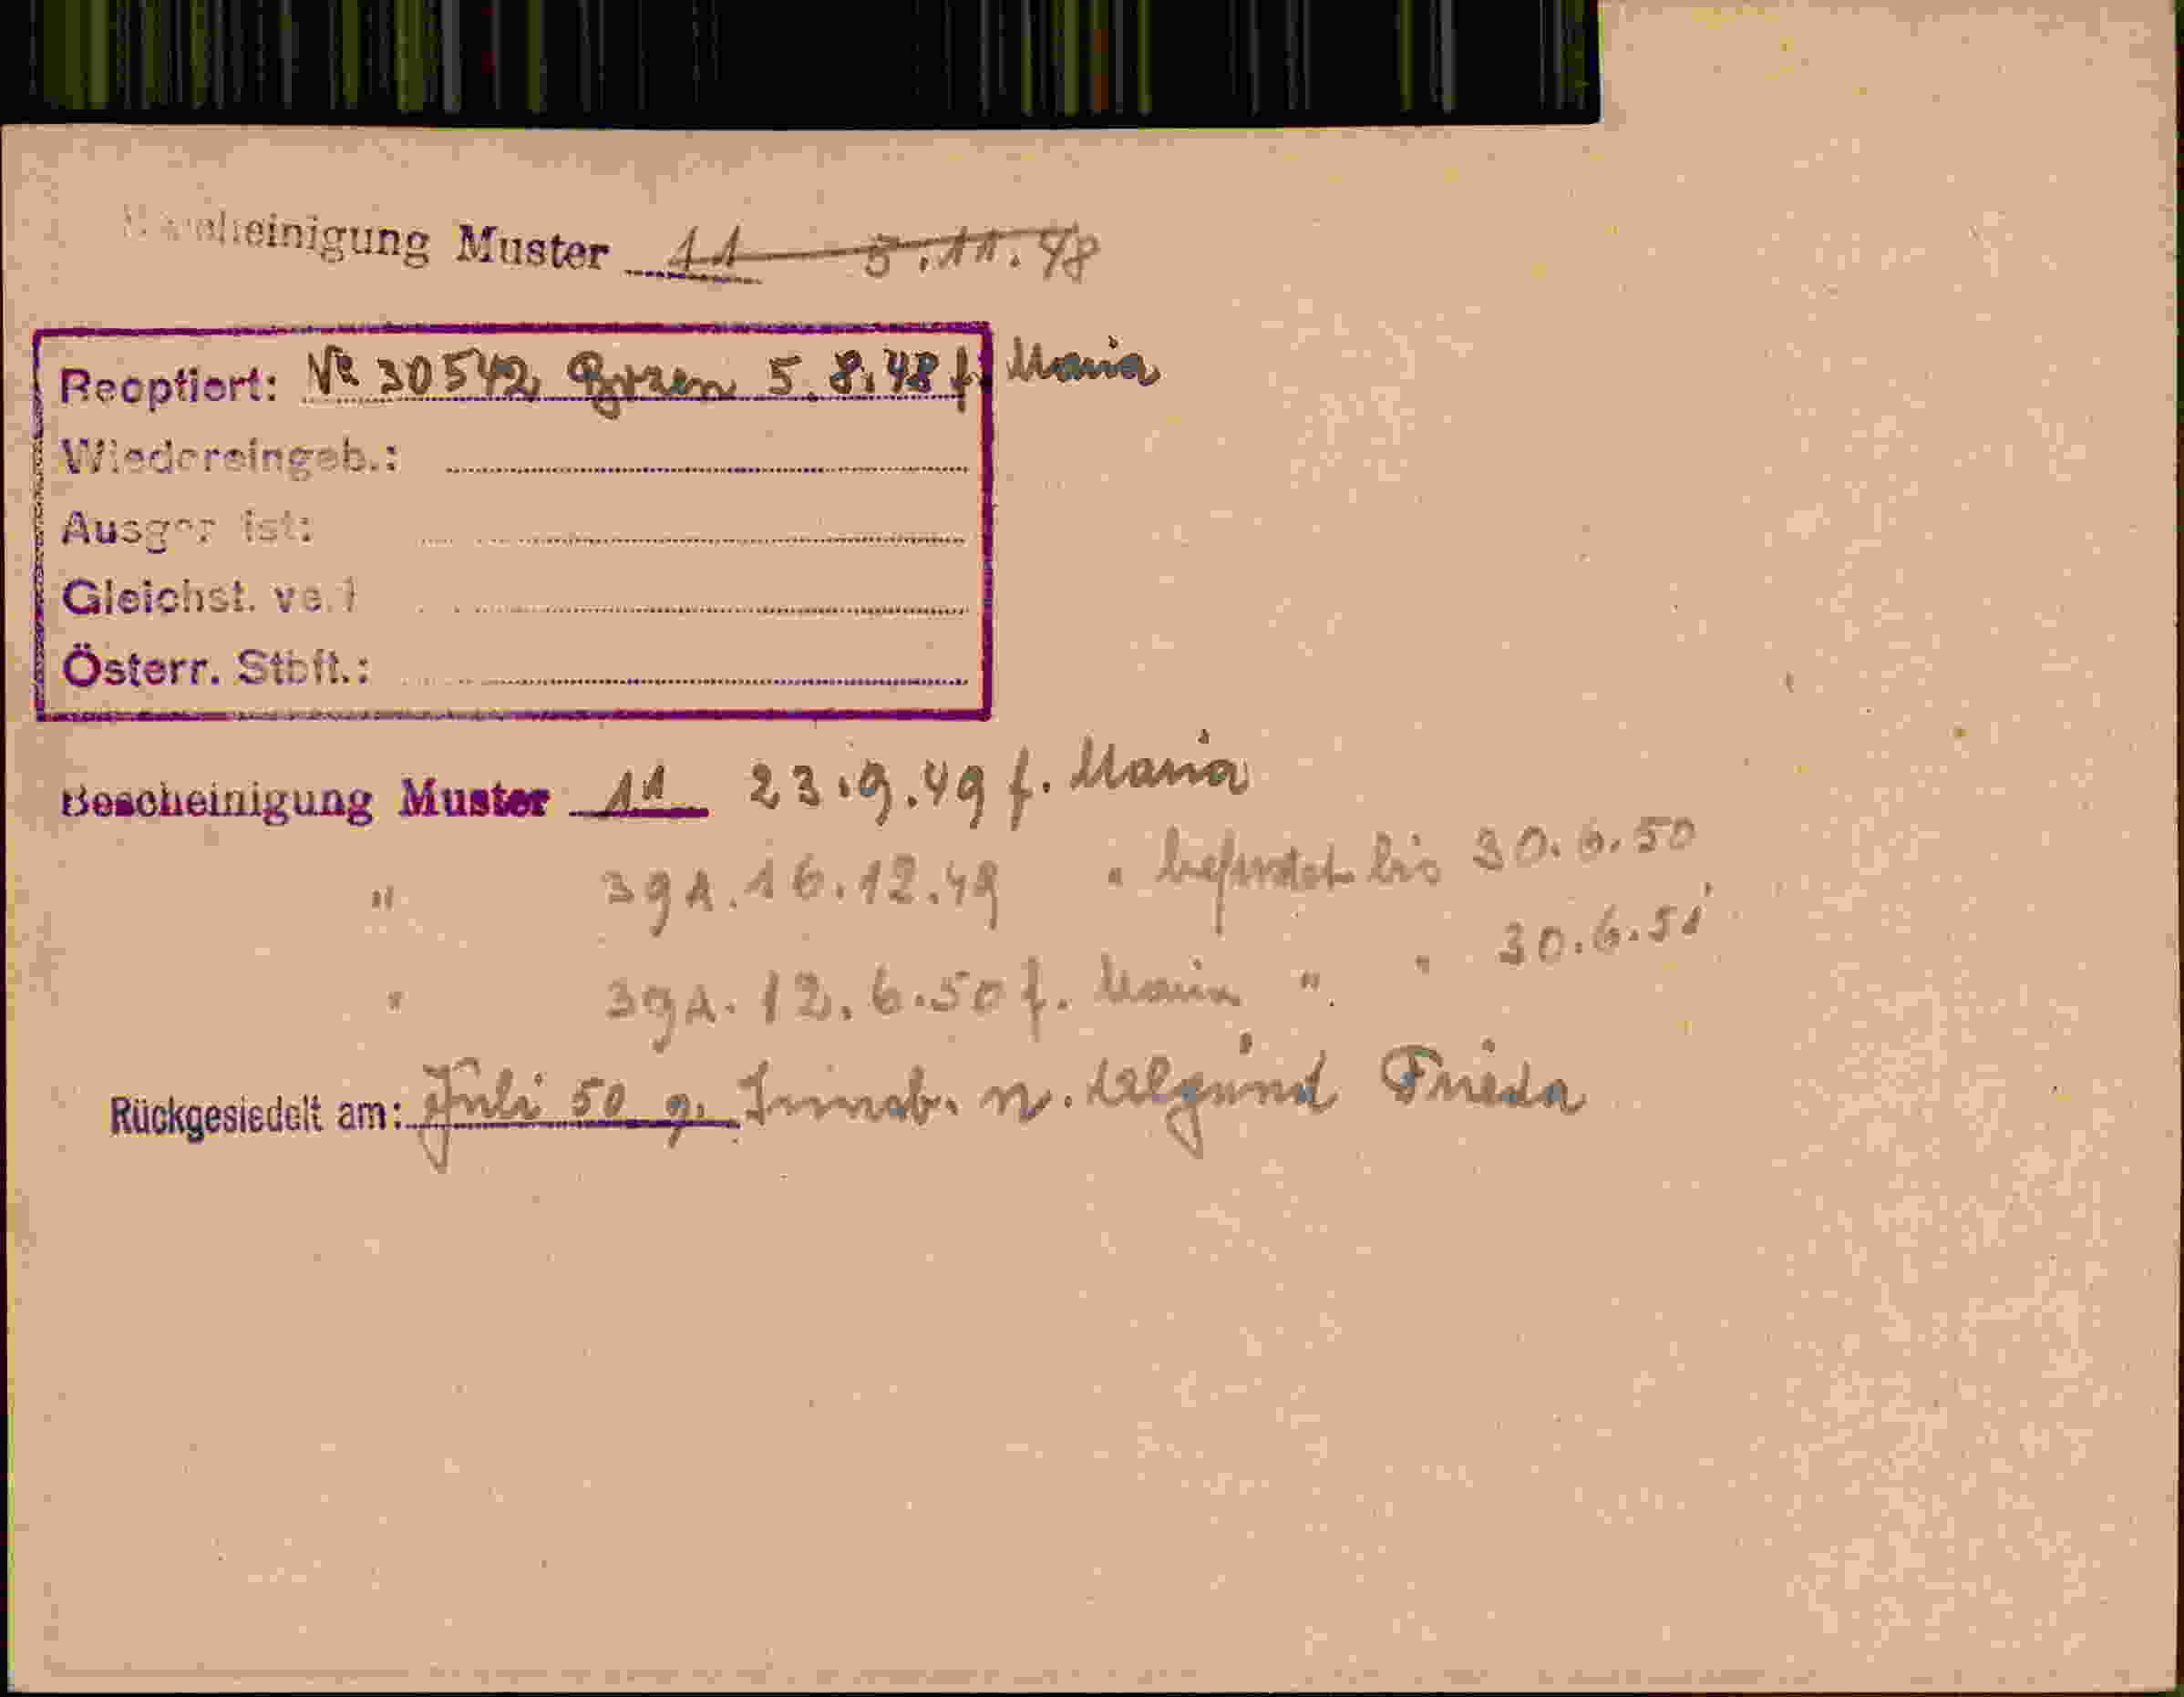 Bescheinigung Muster 11 5.11.48
Reoptiert: № 30542 Bozen 5.8.48 f. Maria
Wiedereingeb.:
Ausger ist:
Gleichst.
Österr. Stbft.:
Bescheinigung Muster 11 23.9.49 f. Maria
" 39A. 16.12.49 " befristet bis 30.6.50
" 39A. 12.6.50 f. Maria " " 30.6.51
Rückgesiedelt am: Juli 50 g. Innsb. n. Frieda